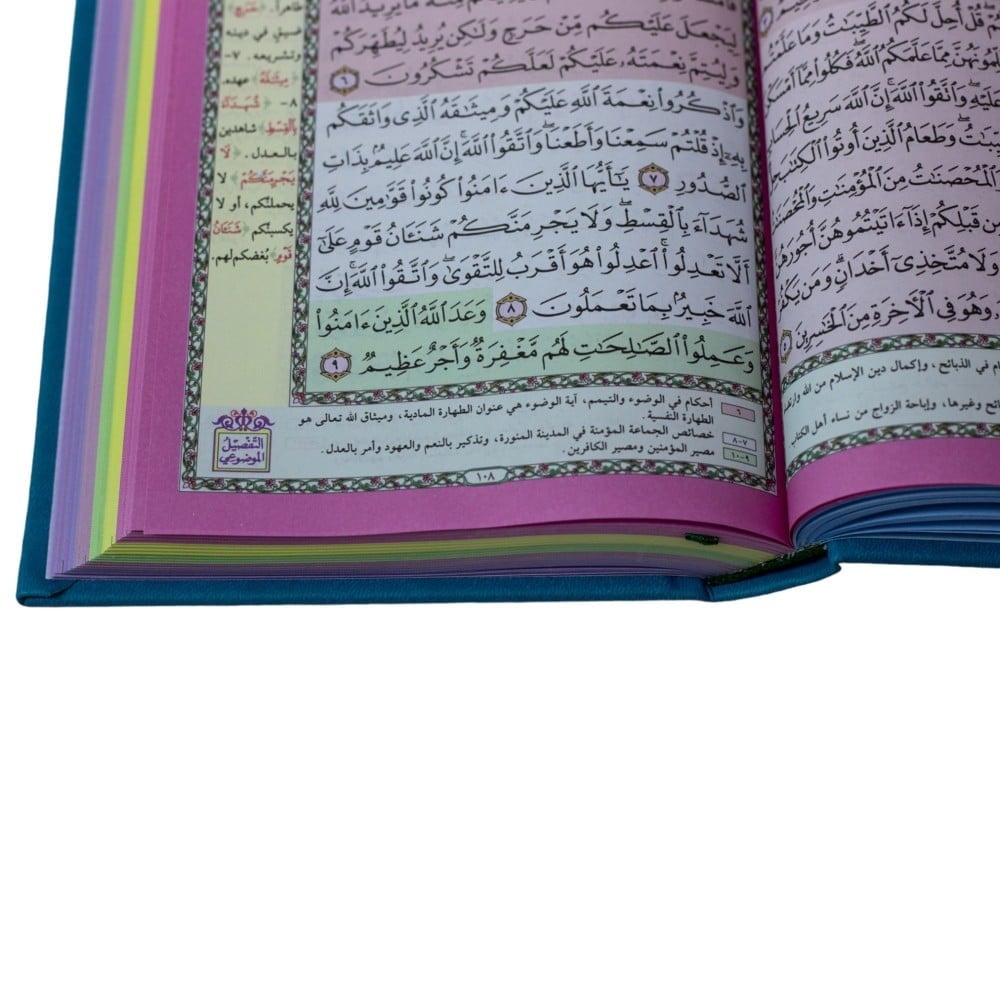 قُلْ أُحِلَّ لَكُمُ ٱلطَّيِّبَٰتُ وَمَا عَلَّمْتُم
مِمَّا عَلَّمَكُمُ ٱللَّهُ فَكُلُوا۟ مِمَّآ أَمْسَكْنَ
عَلَيْهِ وَٱتَّقُوا۟ ٱللَّهَ إِنَّ ٱللَّهَ سَرِيعُ ٱلْحِسَابِ
وَطَعَامُ ٱلَّذِينَ أُوتُوا۟ ٱلْكِتَٰبَ
ٱلْمُحْصَنَٰتُ مِنَ ٱلْمُؤْمِنَٰتِ وَٱلْمُحْصَنَٰتُ
مِن قَبْلِكُمْ إِذَآ ءَاتَيْتُمُوهُنَّ أُجُورَهُنَّ
وَلَا مُتَّخِذِىٓ أَخْدَانٍ وَمَن يَكْفُرْ
وَهُوَ فِى ٱلْأَخِرَةِ مِنَ ٱلْخَٰسِرِينَ
في الذبائح، وإكمال دين الإسلام من الله
وغيرها، وإباحة الزواج من نساء أهل الكتاب
مَا يُرِيدُ ٱللَّهُ
لِيَجْعَلَ عَلَيْكُم مِّنْ حَرَجٍ وَلَٰكِن يُرِيدُ لِيُطَهِّرَكُمْ
وَلِيُتِمَّ نِعْمَتَهُۥ عَلَيْكُمْ لَعَلَّكُمْ تَشْكُرُونَ ٦
وَٱذْكُرُوا۟ نِعْمَةَ ٱللَّهِ عَلَيْكُمْ وَمِيثَٰقَهُ ٱلَّذِى وَاثَقَكُم
بِهِۦٓ إِذْ قُلْتُمْ سَمِعْنَا وَأَطَعْنَا ۖ وَٱتَّقُوا۟ ٱللَّهَ ۚ إِنَّ ٱللَّهَ عَلِيمٌۢ بِذَاتِ
ٱلصُّدُورِ ٧ يَٰٓأَيُّهَا ٱلَّذِينَ ءَامَنُوا۟ كُونُوا۟ قَوَّٰمِينَ لِلَّهِ
شُهَدَآءَ بِٱلْقِسْطِ ۖ وَلَا يَجْرِمَنَّكُمْ شَنَـَٔانُ قَوْمٍ عَلَىٰٓ
أَلَّا تَعْدِلُوا۟ ۚ ٱعْدِلُوا۟ هُوَ أَقْرَبُ لِلتَّقْوَىٰ ۖ وَٱتَّقُوا۟ ٱللَّهَ ۚ إِنَّ
ٱللَّهَ خَبِيرٌۢ بِمَا تَعْمَلُونَ ٨ وَعَدَ ٱللَّهُ ٱلَّذِينَ ءَامَنُوا۟
وَعَمِلُوا۟ ٱلصَّٰلِحَٰتِ لَهُم مَّغْفِرَةٌ وَأَجْرٌ عَظِيمٌ ٩
ظاهراً. ﴿حَرَجٍ﴾
ضيق في دينه
وتشريعه. ٧-
﴿مِيثَٰقَهُ﴾ عهده.
٨- ﴿شُهَدَآءَ
بِٱلْقِسْطِ﴾ شاهدين
بالعدل. ﴿لَا
يَجْرِمَنَّكُمْ﴾ لا
يحملنّكم، أو لا
يكسبنّكم ﴿شَنَـَٔانُ
قَوْمٍ﴾ بُغضكم لهم.
التَّفْصِيلُ
المَوْضُوعِي
٦ أحكام في الوضوء والتيمم، آية الوضوء هي عنوان الطهارة المادية، وميثاق الله تعالى هو
الطهارة النفسية.
٧-٨ خصائص الجماعة المؤمنة في المدينة المنورة، وتذكير بالنعم والعهود وأمر بالعدل.
٩-١٠ مصير المؤمنين ومصير الكافرين.
١٠٨